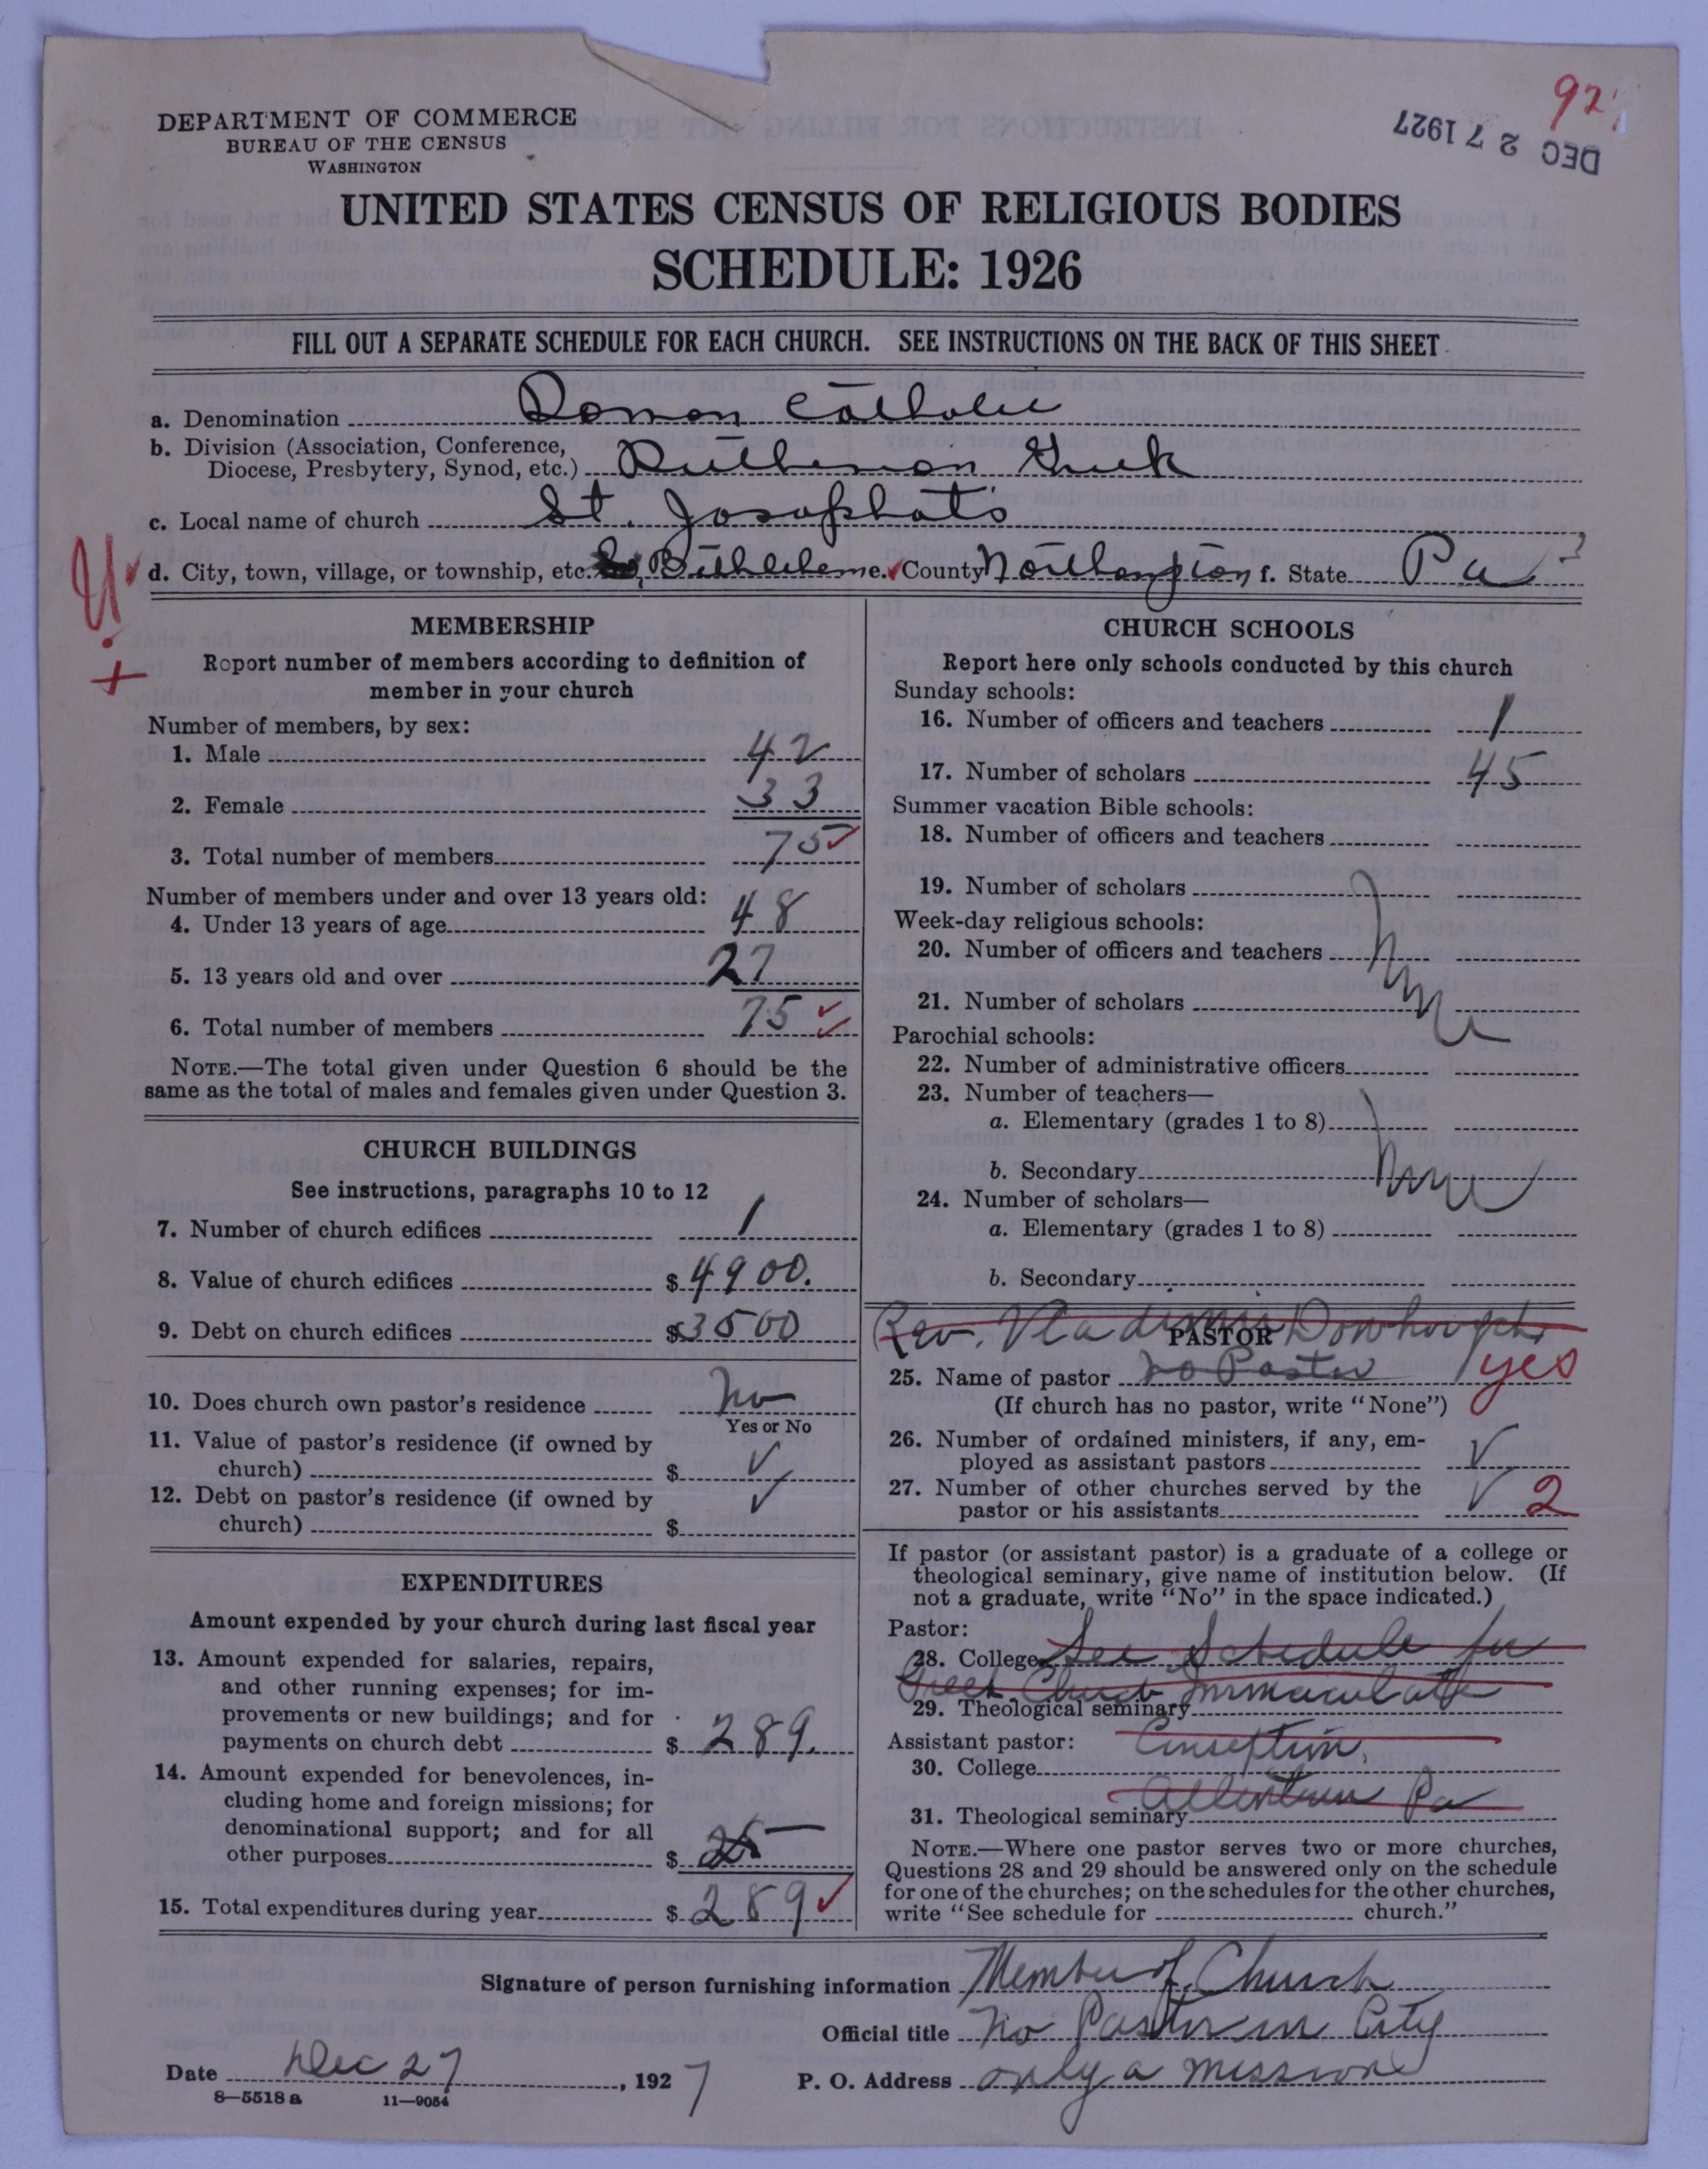 927
DEC 27 1927
DEPARTMENT OF COMMERCE
BUREAU OF THE CENSUS
WASHINGTON
UNITED STATES CENSUS OF RELIGIOUS BODIES
SCHEDULE: 1926
FILL OUT A SEPARATE SCHEDULE FOR EACH CHURCH. SEE INSTRUCTIONS ON THE BACK OF THIS SHEET
a. Denomination Roman Catholic
b. Division (Association, Conference,
Diocese, Presbytery, Synod, etc.) Ruthenian Greek
c. Local name of church St. Josaphats
d. City, town, village, or township, etc. Bethlehem e. County Northampton f. State Pa
MEMBERSHIP
Report number of members according to definition of
member in your church
Number of members, by sex:
1. Male 42
2. Female 33
3. Total number of members 75
Number of members under and over 13 years old:
4. Under 13 years of age 48
5. 13 years old and over 27
6. Total number of members 75
NOTE.—The total given under Question 6 should be the
same as the total of males and females given under Question 3.
CHURCH BUILDINGS
See instructions, paragraphs 10 to 12
7. Number of church edifices 1
8. Value of church edifices $4900.
9. Debt on church edifices $3500
10. Does church own pastor's residence No
Yes or No
11. Value of pastor's residence (if owned by
church) $ ✓
12. Debt on pastor's residence (if owned by
church) $ ✓
EXPENDITURES
Amount expended by your church during last fiscal year
13. Amount expended for salaries, repairs,
and other running expenses; for im-
provements or new buildings; and for
payments on church debt $ 289.
14. Amount expended for benevolences, in-
cluding home and foreign missions; for
denominational support; and for all
other purposes $
15. Total expenditures during year $ 289
CHURCH SCHOOLS
Report here only schools conducted by this church
Sunday schools:
16. Number of officers and teachers 1
17. Number of scholars 45
Summer vacation Bible schools:
18. Number of officers and teachers
19. Number of scholars
Week-day religious schools:
20. Number of officers and teachers
none
21. Number of scholars
Parochial schools:
22. Number of administrative officers
23. Number of teachers—
a. Elementary (grades 1 to 8)
b. Secondary none
24. Number of scholars—
a. Elementary (grades 1 to 8)
b. Secondary
Rev. Vladimir
PASTOR
25. Name of pastor No Pastor yes
(If church has no pastor, write "None")
26. Number of ordained ministers, if any, em-
ployed as assistant pastors ✓
27. Number of other churches served by the
pastor or his assistants ✓ 2
If pastor (or assistant pastor) is a graduate of a college or
theological seminary, give name of institution below. (If
not a graduate, write "No" in the space indicated.)
Pastor:
28. College See Schedule for
Greek Church Immaculate
29. Theological seminary
Assistant pastor: Conseption,
30. College
Allentown Pa
31. Theological seminary
NOTE.—Where one pastor serves two or more churches,
Questions 28 and 29 should be answered only on the schedule
for one of the churches; on the schedules for the other churches,
write "See schedule for church."
Signature of person furnishing information Member of Church
Official title No Pastor in City
Date Dec 27, 1927 P. O. Address only a mission
8—5518 a 11—9054